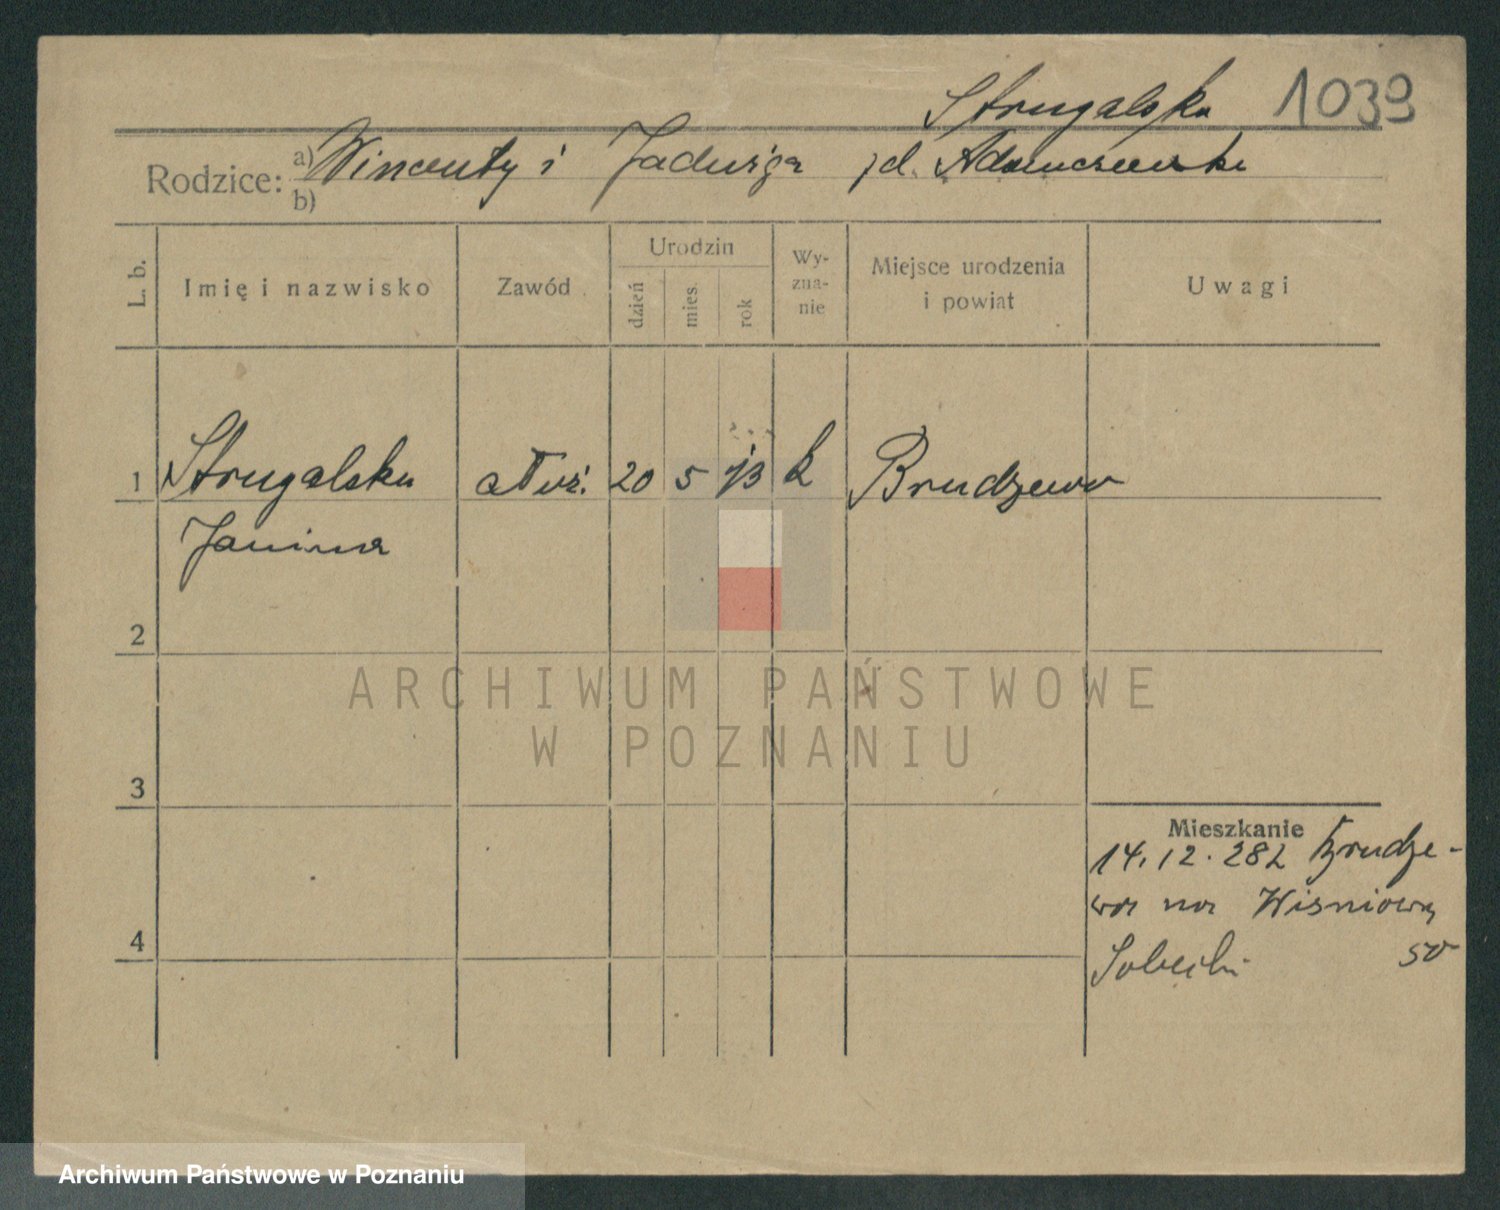 Strugalska 1039
Rodzice: a) Wincenty i Jadwiga zd. Adamczewska
b)
L. b. Imię i nazwisko Zawód Urodzin dzień mies. rok Wy-zna-nie Miejsce urodzenia i powiat Uwagi
1 Strugalska służ. 20 5 13 k Brudzewo
Janina
2
3
4
Mieszkanie
14.12.28 z Brudze-
wa na Wiśniową
50
ARCHIWUM PAŃSTWOWE
W POZNANIU
Archiwum Państwowe w Poznaniu